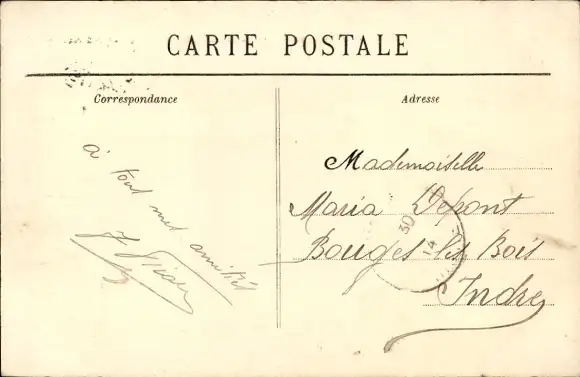 CARTE POSTALE
Correspondance
Adresse
à tout mes amitiés
Mademoiselle
Maria Depont
Bouges les Bois
Indre
30
14